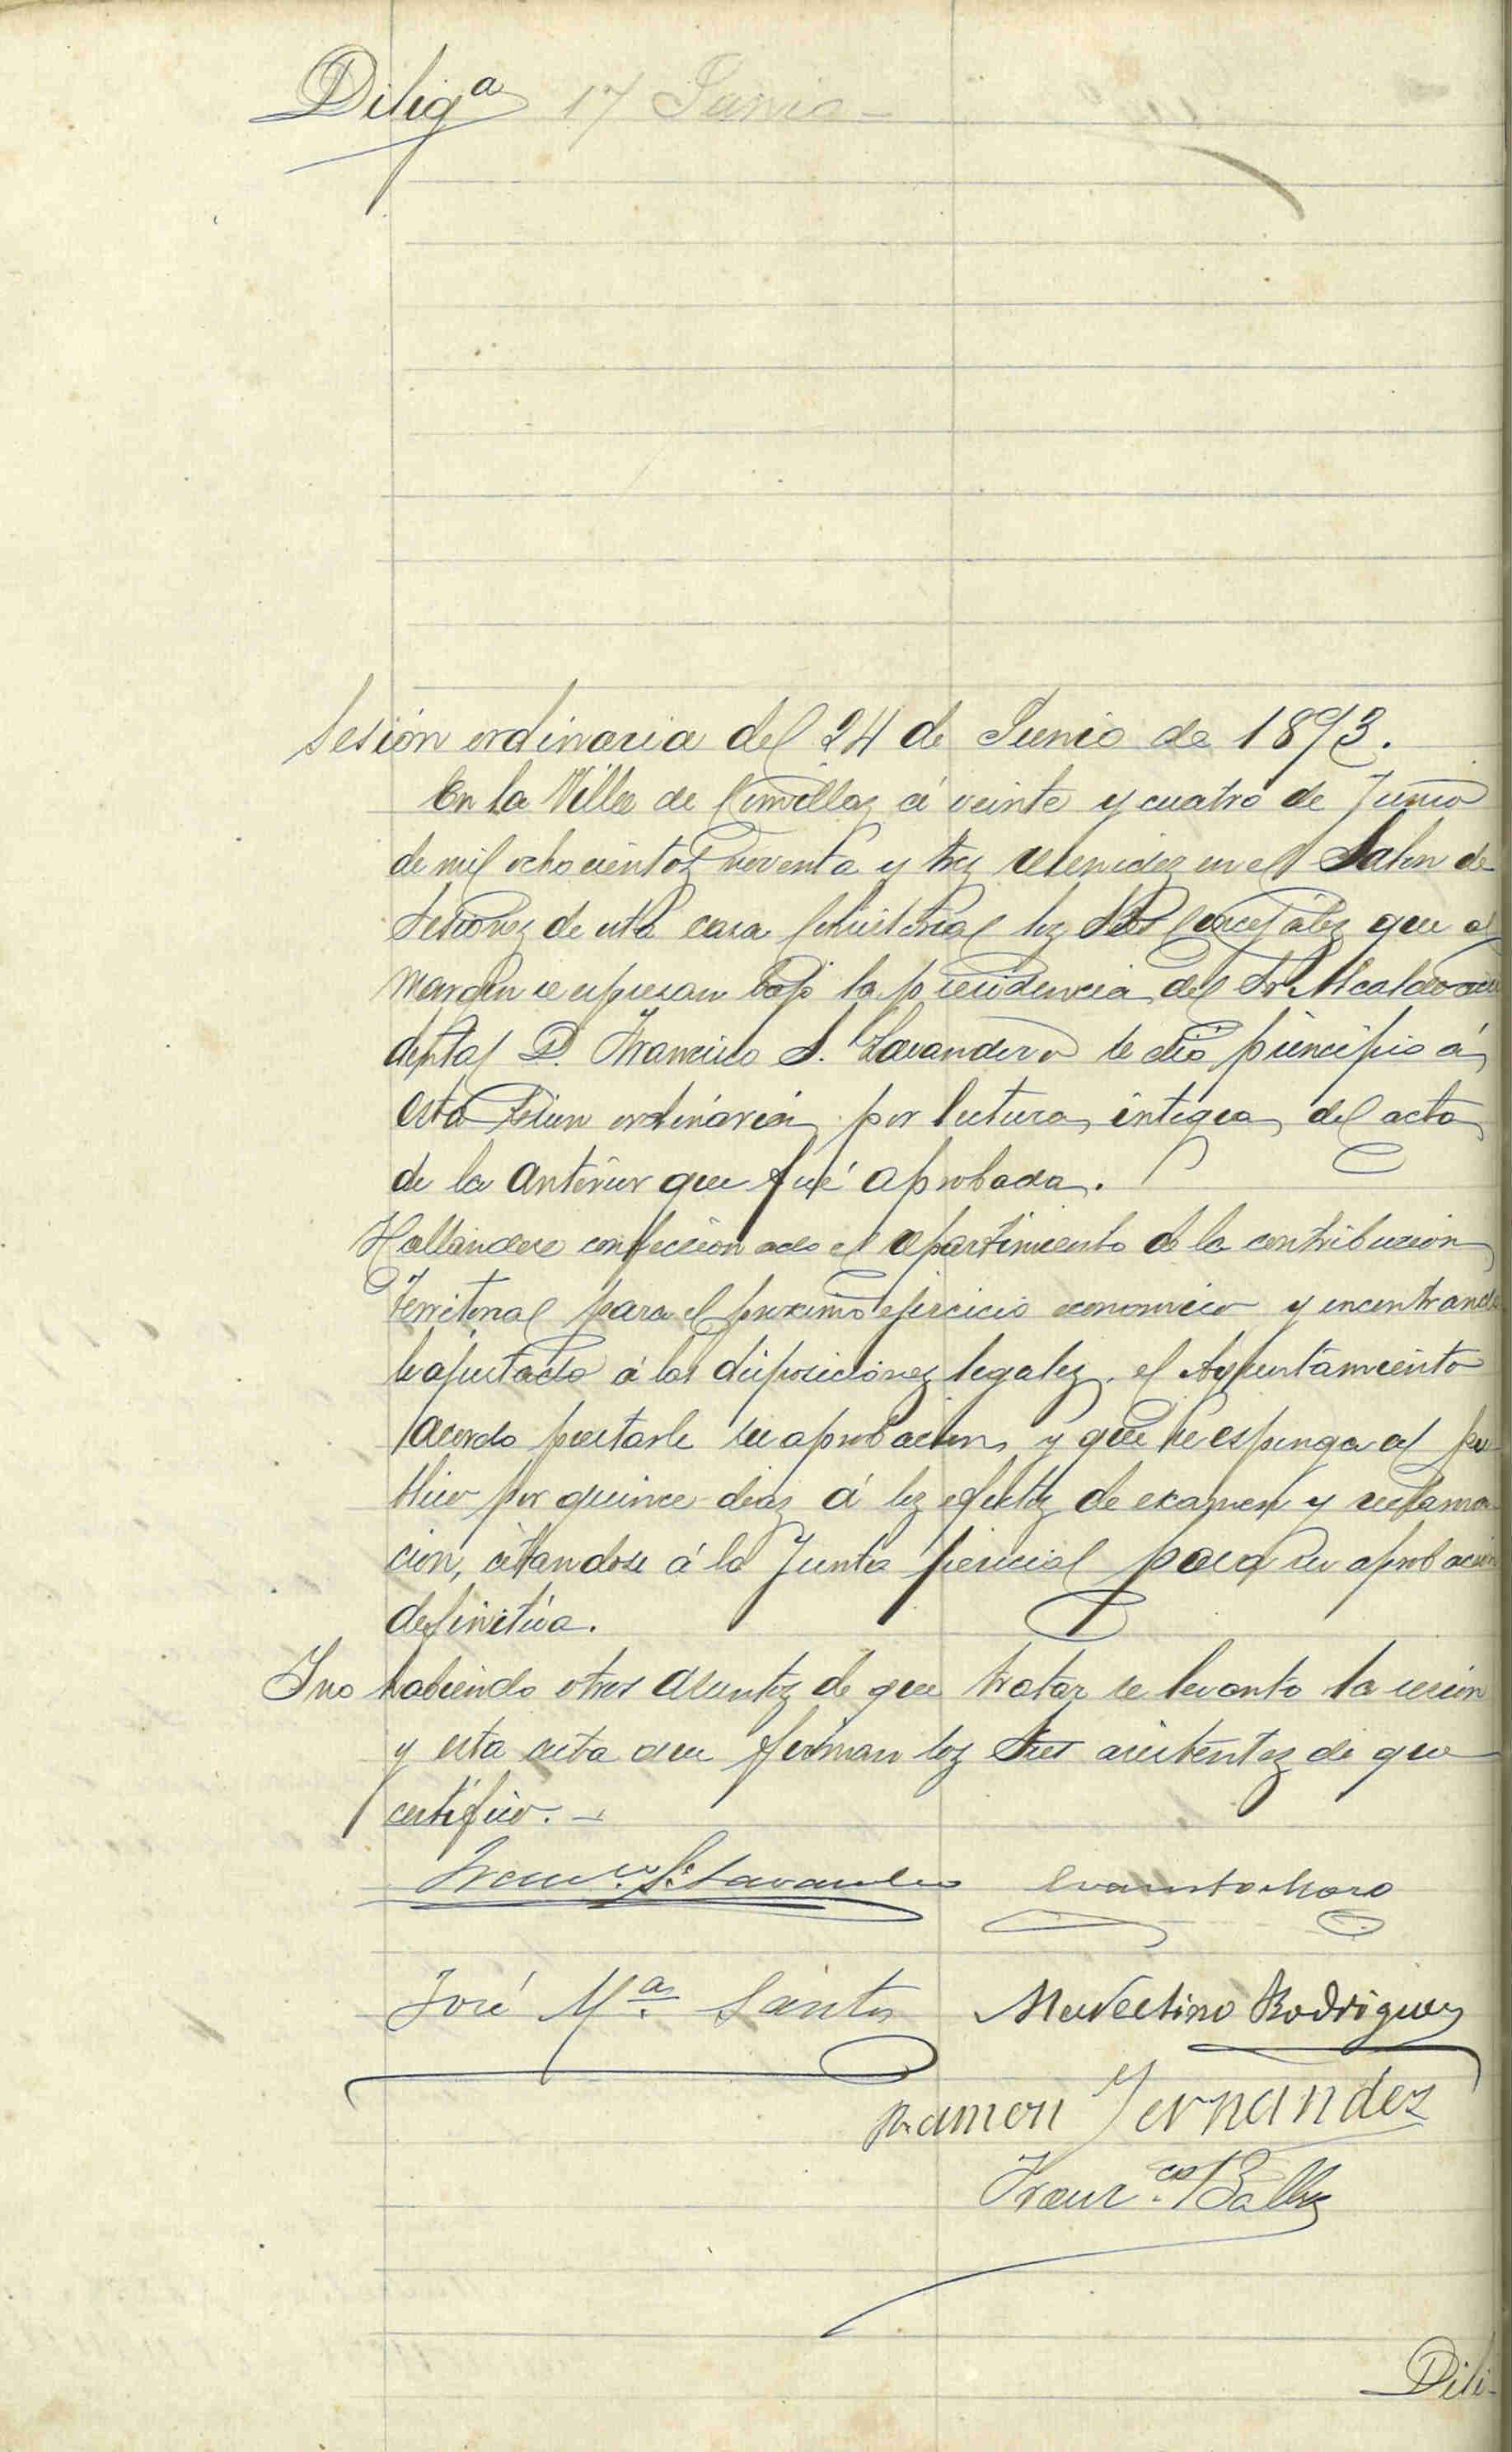 Dilig.ª 17 Junio -
Sesión ordinaria del 24 de Junio de 1893.
En la Villa de Comillas á veinte y cuatro de Junio
de mil ochocientos noventa y tres reunidos en el Salon de
Sesiones de esta casa Consistorial los Sres Concejales que al
margen se espresan bajo la presidencia del Sr Alcalde acci
dental D. Francisco S. Lavandero se dió principio á
esta sesion ordinaria por lectura integra del acta
de la anterior que fué aprobada.
Hallandose confeccionado el repartimiento de la contribucion
Territorial para el proximo ejercicio economico y encontrando
le ajustado á las disposiciones legales, el Ayuntamiento
acordo prestarle su aprobacion, y que se esponga al pu-
blico por quince dias á los efectos de examen y reclama-
cion, citandose á la Junta pericial para su aprobacion
definitiva.
Y no habiendo otros asuntos de que tratar se levanto la sesion
y esta acta que firman los Sres asistentes de que
certifico. -
Franco. S. Lavandero Evaristo Moro
José M.ª Santos Marcelino Rodriguez
Ramon Fernandez
Franco.
Dili-